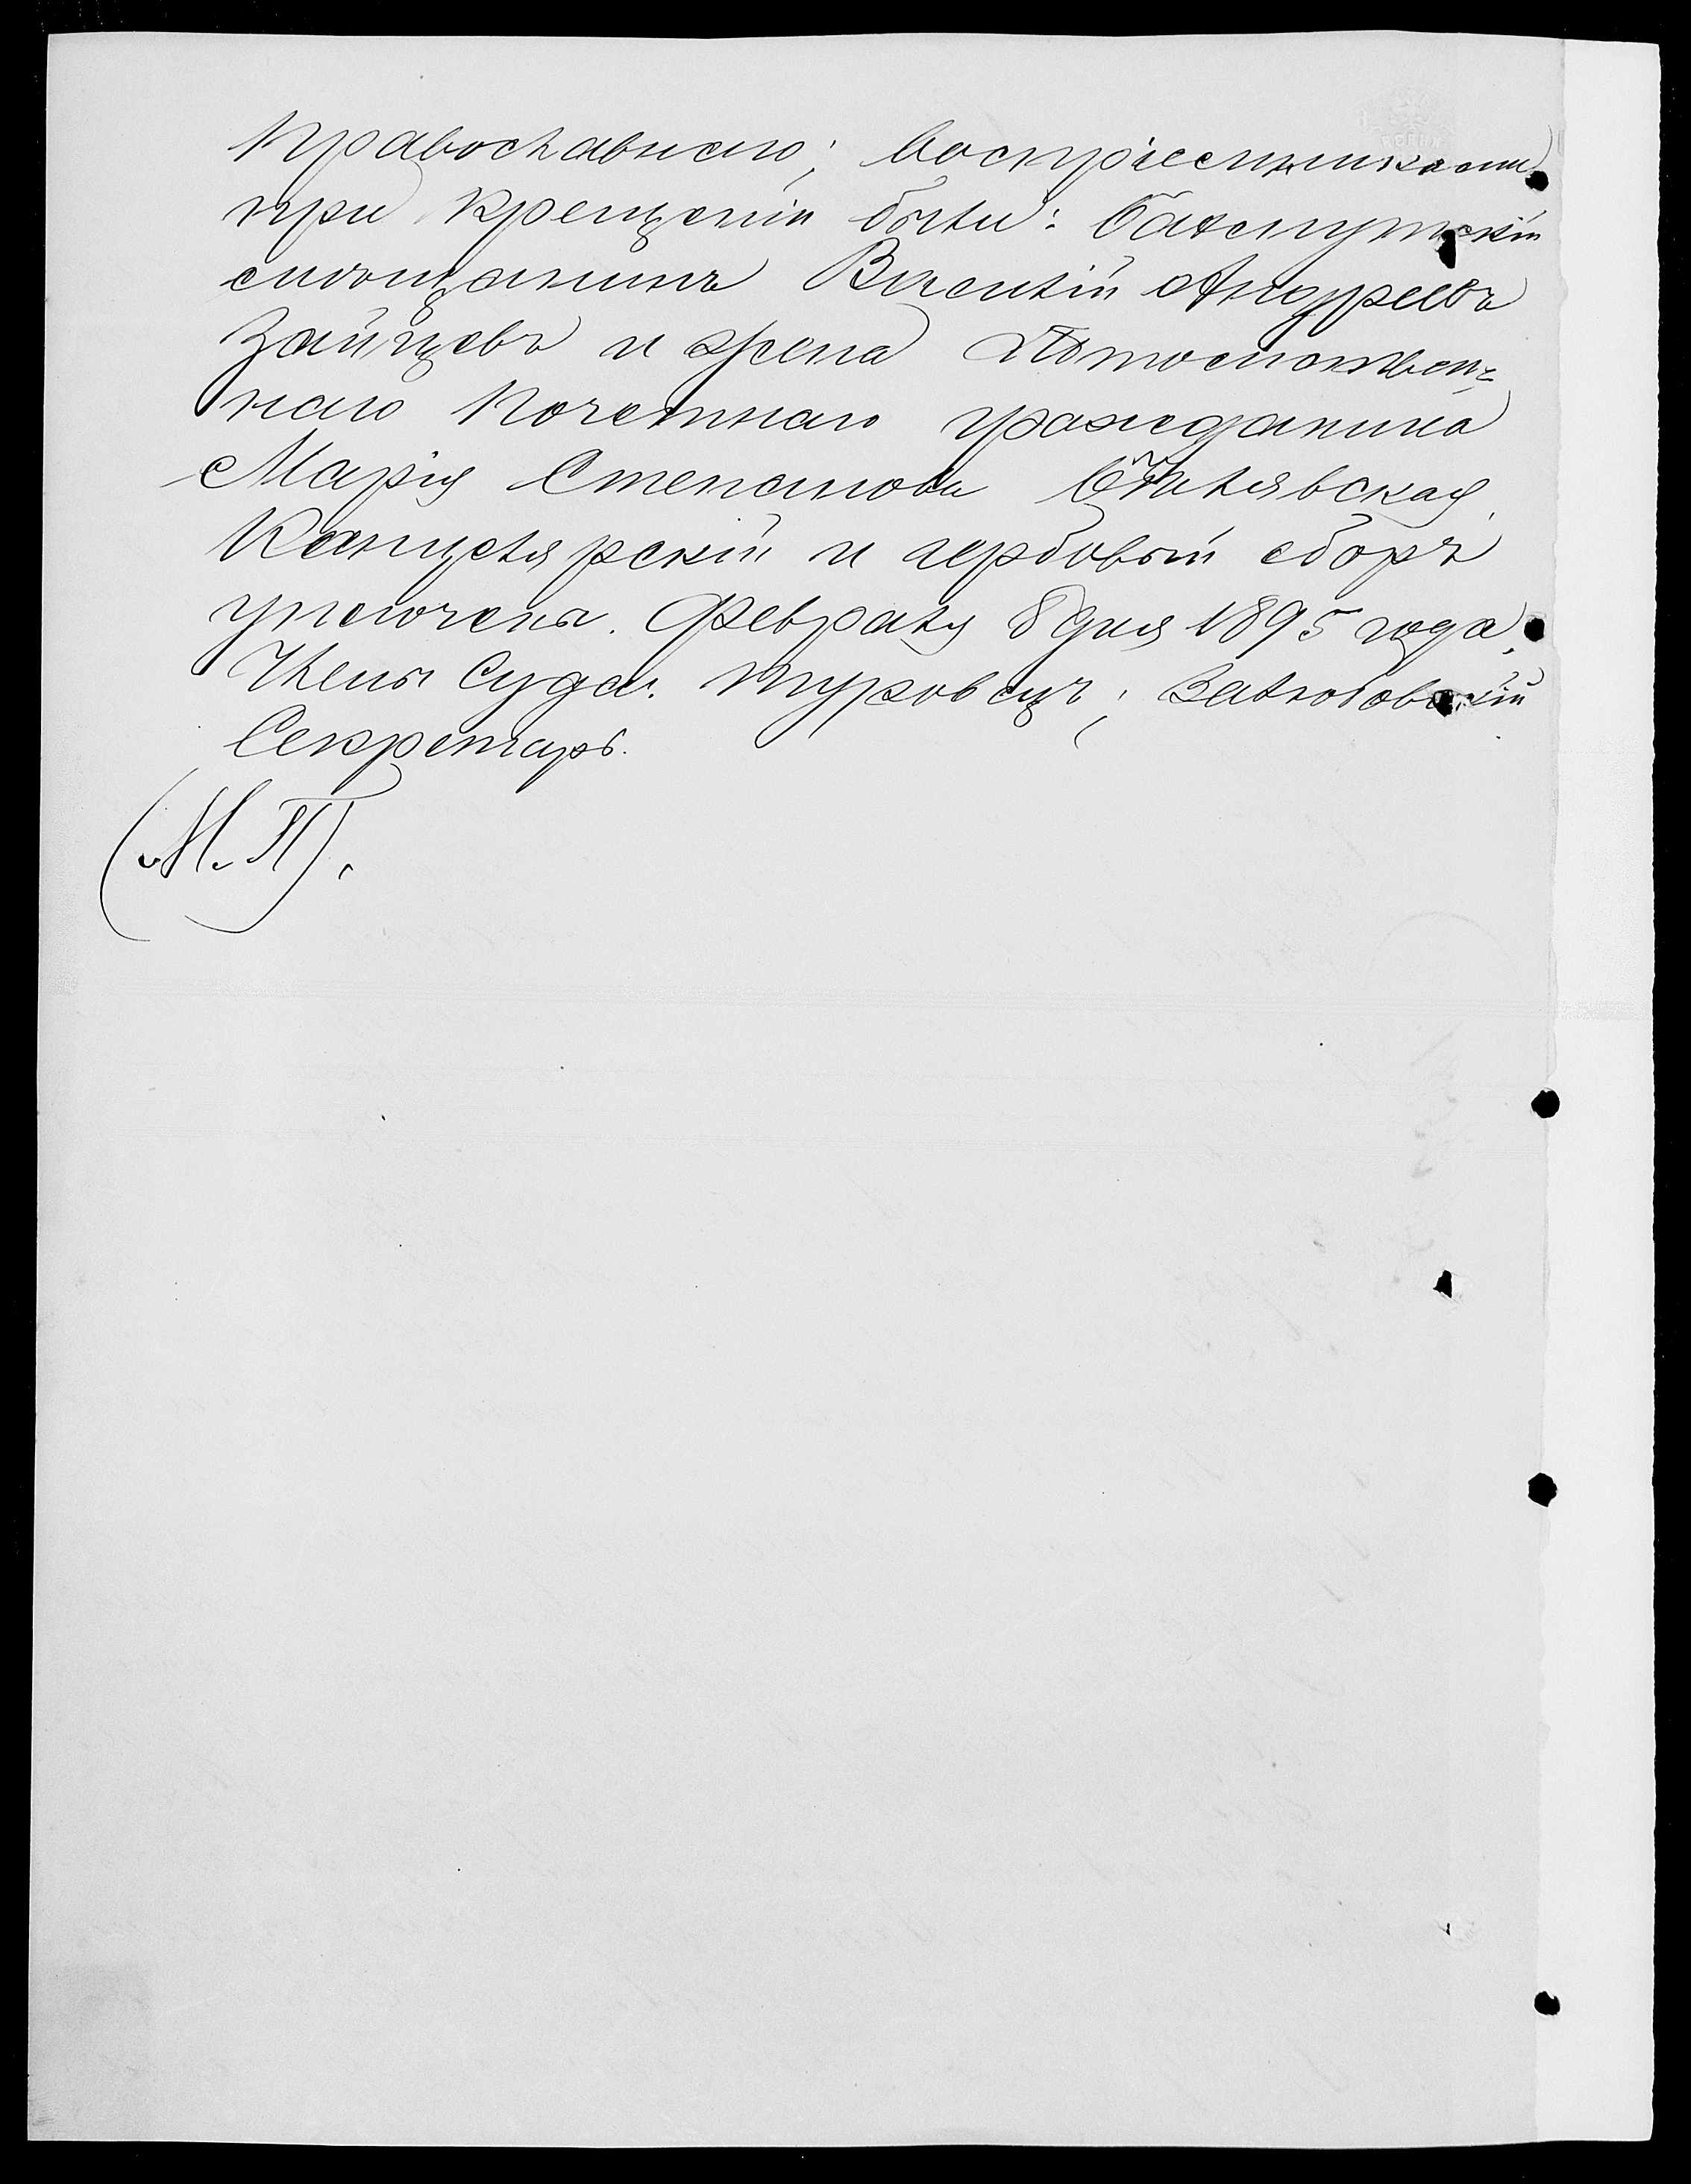 Православнаго; воспріемниками
при крещеніи были: Бахмутскій
мѣщанинъ Василій Андреевъ
Зайцевъ и жена Потомствен=
наго Почетнаго гражданина
Марія Степанова
Канцелярскій и гербовый сборъ
уплочены. Февраля 8 дня 1895 года.
Члены Суда: Туровецъ;
Секретарь.
(М. П).